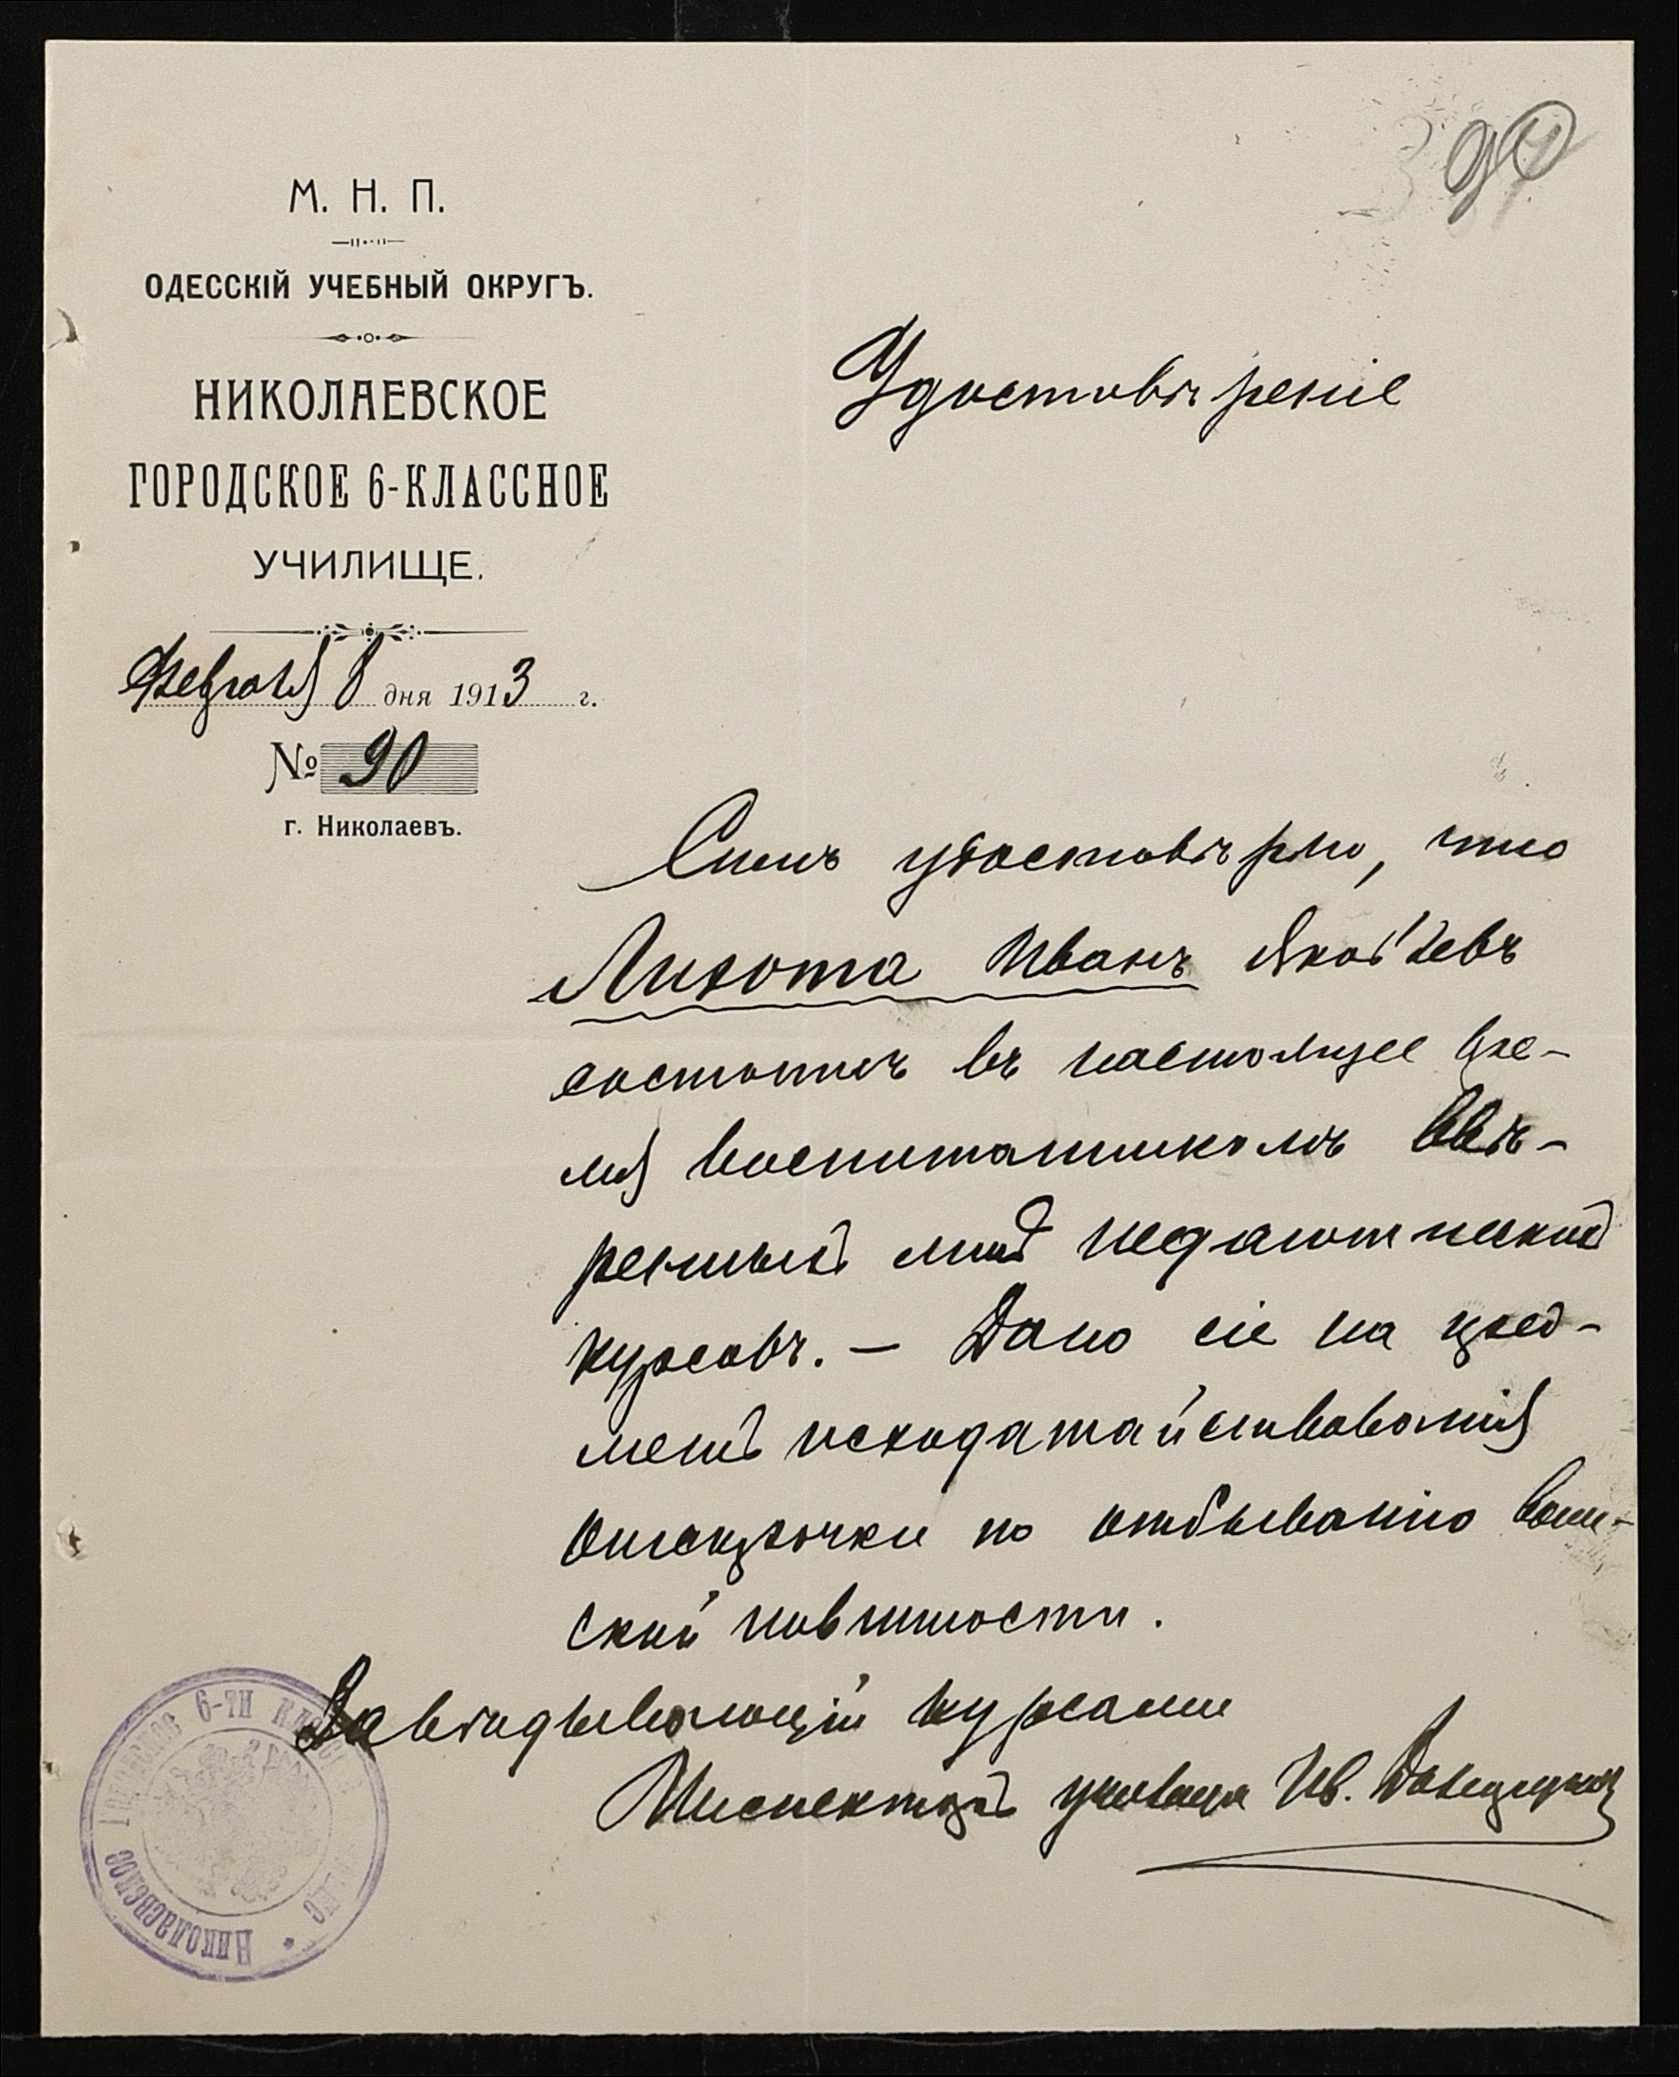 М. Н. П.
ОДЕССКІЙ УЧЕБНЫЙ ОКРУГЪ.
НИКОЛАЕВСКОЕ
ГОРОДСКОЕ 6-КЛАССНОЕ
УЧИЛИЩЕ.
Февраля 8 дня 1913 г.
№ 90
г. Николаевъ.
Удостовѣреніе
Симъ удостовѣряю, что
Лихота Иванъ Яковлевъ
состоитъ въ настоящее вре-
мя воспитанникомъ ввѣ-
ренныхъ мнѣ педагогическихъ
курсовъ. — Дано сіе на пред-
метъ исходатайствованія
отсрочки по отбыванію воин-
ской повинности.
Завѣдывающій курсами
Инспекторъ училища Ив.
Николаевское Городское 6-ти